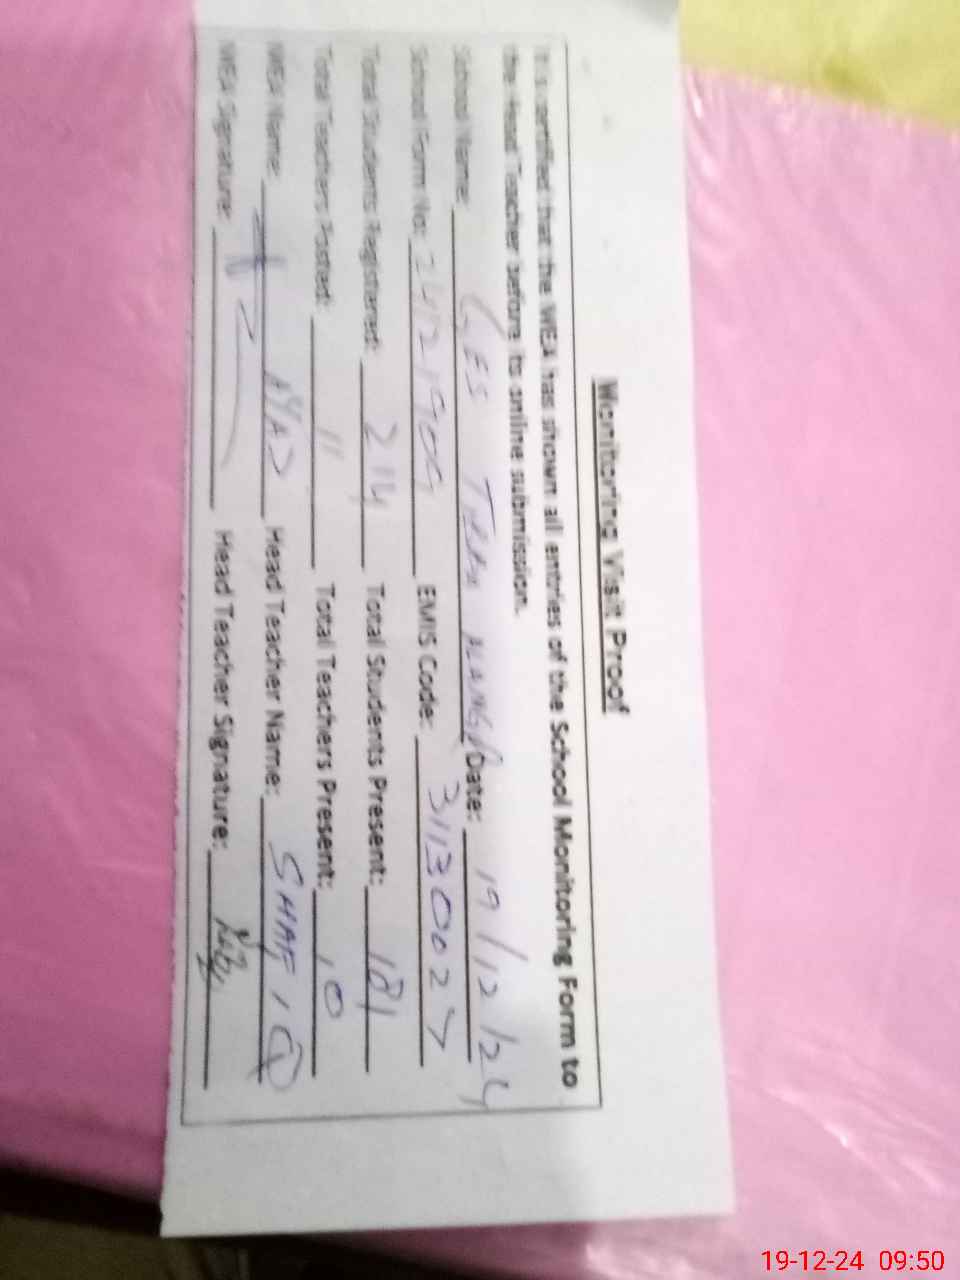 Monitoring Visit Proof
It is certified that the WEA has shown all entries of the School Monitoring Form to
the Head Teacher before its online submission.
School Name: GES Date: 19/12/24
School Form No: EMIS Code: 31130027
Total Students Registered: 214 Total Students Present: 181
Total Teachers Posted: 11 Total Teachers Present: 10
WEA Name: Head Teacher Name: SHAFIQ
WEA Signature: Head Teacher Signature:
19-12-24 09:50